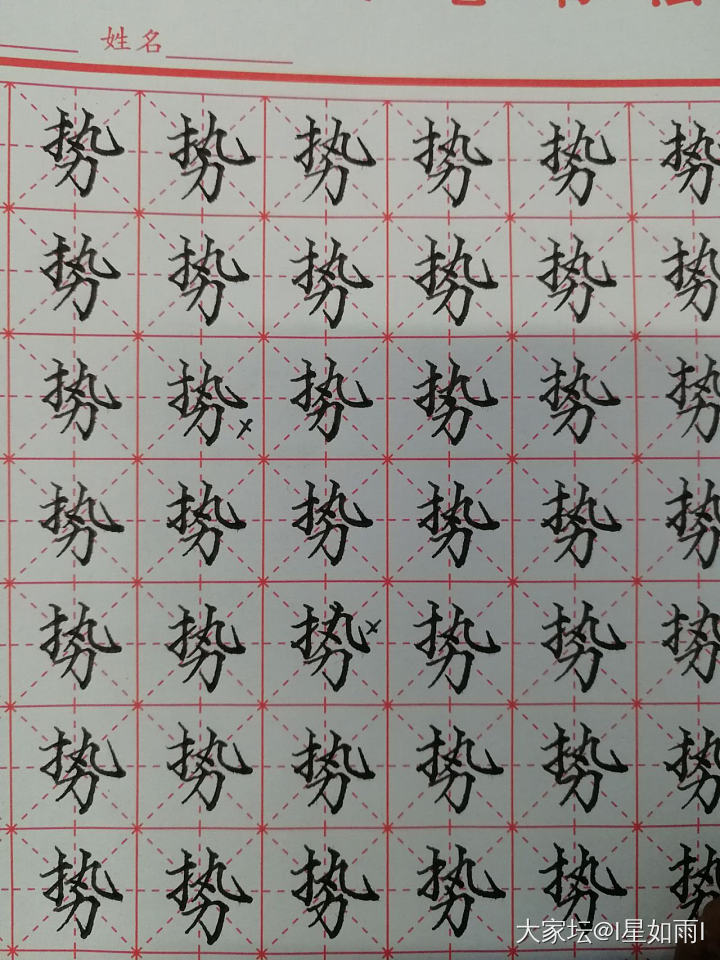 姓名
势 势 势 势 势 势
势 势 势 势 势 势
势 势 × 势 势 势 势
势 势 势 势 势 势
势 势 势 × 势 势 势
势 势 势 势 势 势
势 势 势 势 势 势
大家坛@I星如雨I